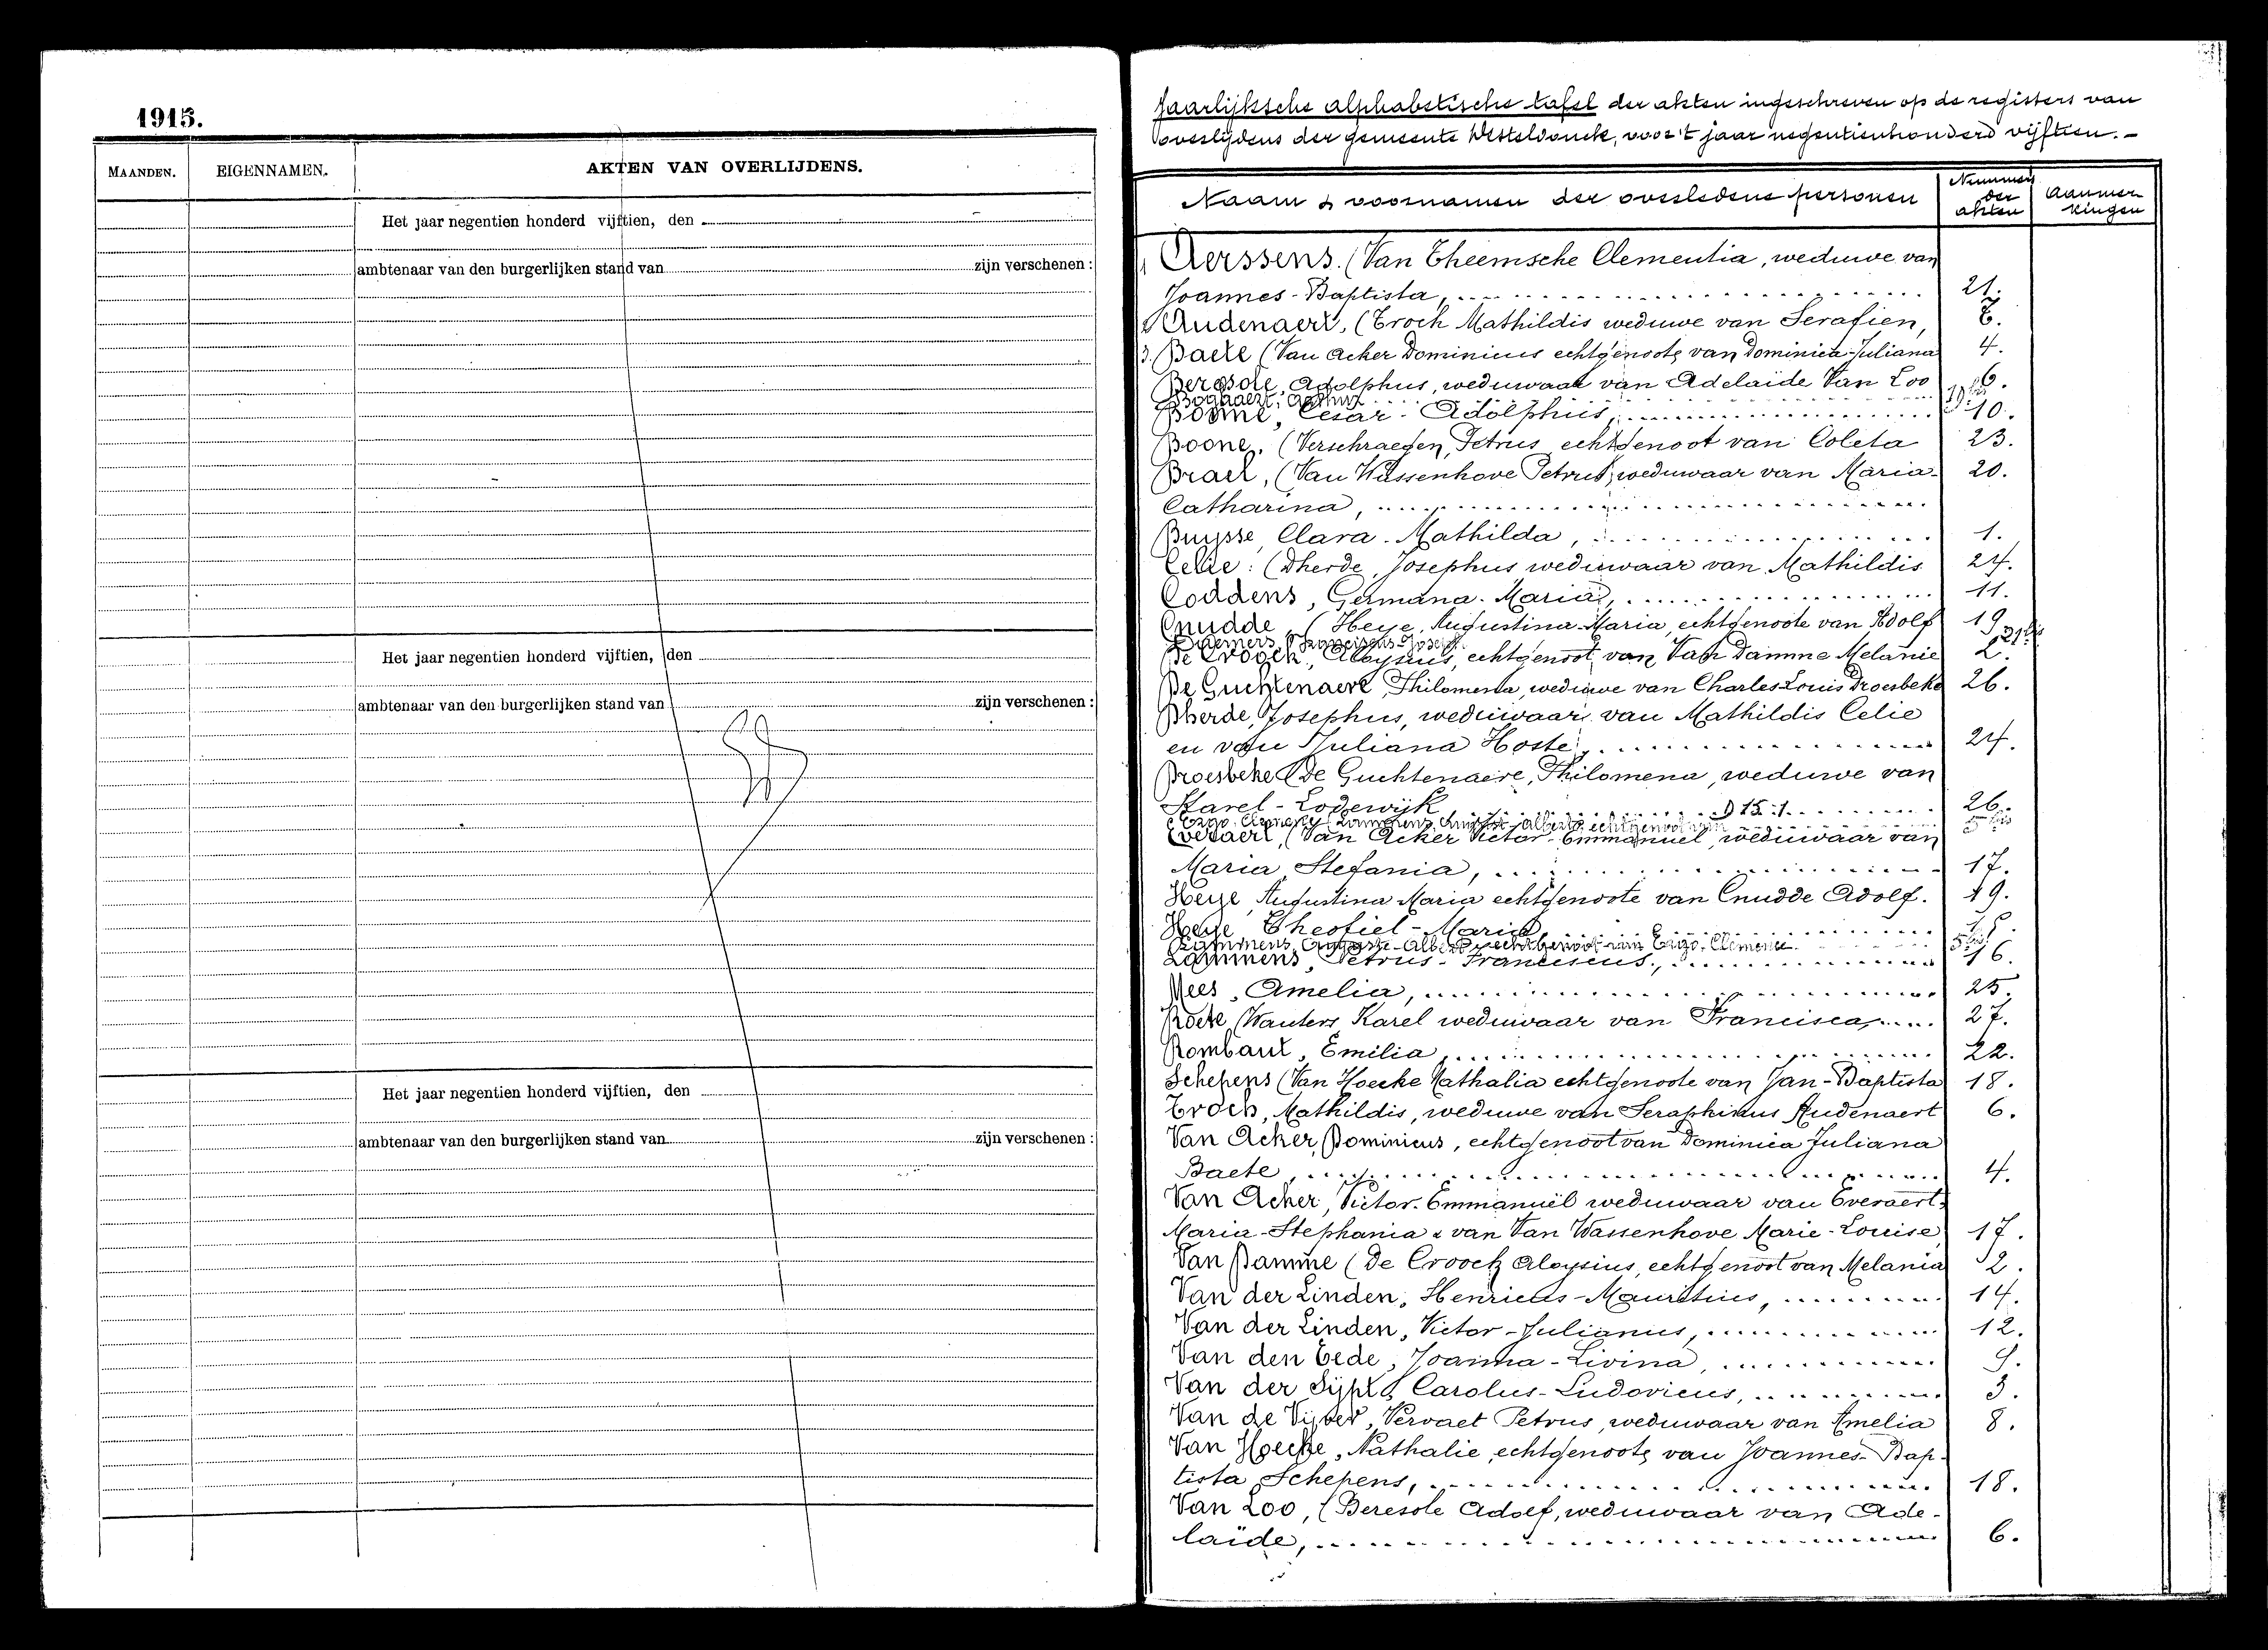 1915.
MAANDEN. EIGENNAMEN. AKTEN VAN OVERLIJDENS.
Het jaar negentien honderd vijftien, den
ambtenaar van den burgerlijken stand van zijn verschenen :
Het jaar negentien honderd vijftien, den
ambtenaar van den burgerlijken stand van zijn verschenen :
Het jaar negentien honderd vijftien, den
ambtenaar van den burgerlijken stand van zijn verschenen :
Jaarlijksche alphabetische tafel der akten ingeschreven op de registers van
overlijdens der gemeente Desteldonck, voor 't jaar negentienhonderd vijftien. -
Naam & voornamen der overledene personen Nummers der akten Aanmerkingen
Aerssens (Van Theemsche Clementia, weduwe van
Joannes-Baptista, 21.
Audenaert, (Troch Mathildis weduwe van Serafien,
3. Baete (Van Acker Dominicus echtgenoote van Dominica-Juliana 4.
Adolphus, weduwaar van Adelaïde Van Loo 6.
Cesar-Adolphus, 10.
Boone, (Verschraegen, Petrus echtgenoot van Coleta 23.
Brael, (Van Wassenhove Petrus, weduwaar van Maria- 20.
Catharina,
Buysse, Clara-Mathilda, 1.
Celie: (Dherde, Josephus weduwaar van Mathildis 24.
Coddens, Germana-Maria, 11.
Cnudde, (Heye, Augustina-Maria, echtgenoote van Adolf 19
De Croock, Aloysius, echtgenoot van Van Damme Melanie 2.
De Guchtenaere, Philomena, weduwe van Charles Louis Droesbeke 26.
Dherde, Josephus, weduwaar van Mathildis Celie
en van Juliana Hoste, 24.
Droesbeke (De Guchtenaere, Philomena, weduwe van
Karel-Lodewijk 26.
Everaert, (Van Acker Victor-Emmanuel, weduwaar van
Maria Stefania, 17.
Heye, Augustina Maria echtgenoote van Cnudde Adolf. 19.
Heye Theofiel-Maria
Lammens, Petrus-Franciscus, 16.
Mees, Amelia, 25.
Roete (Wauters Karel weduwaar van Francisca, 27.
Rombaut, Emilia, 22.
Schepens (Van Hoecke Nathalia echtgenoote van Jan-Baptista 18.
Troch, Mathildis, weduwe van Seraphinus Audenaert 6.
Van Acker, Dominicus, echtgenoot van Dominica Juliana
Baete, 4.
Van Acker, Victor-Emmanuël weduwaar van Everaert
Maria-Stephania & van Van Wassenhove Marie-Louise 17.
Van Damme (De Croock Aloysius, echtgenoot van Melania 2.
Van der Linden, Henricus-Mauritius, 14.
Van der Linden, Victor-Julianus, 12.
Van den Eede, Joanna-Livina, 9.
Van der Sijpt, Carolus-Ludovicus, 3.
Van de Vijver, Vervaet Petrus, weduwaar van Amelia 8.
Van Hoecke, Nathalie, echtgenoote van Joannes-Bap-
tista Schepens, 18.
Van Loo, (Beresole Adolf, weduwaar van Ade-
laïde, 6.